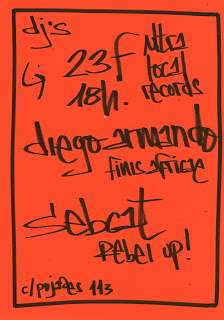 dj's
23f
18h.
ultra
local
records
diego armando
finisafricae
sebcat
rebel up!
c/pujades 113